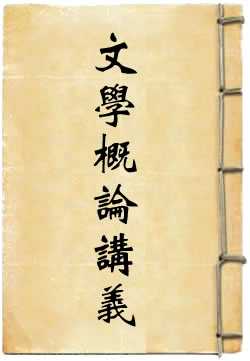 文學概論講義